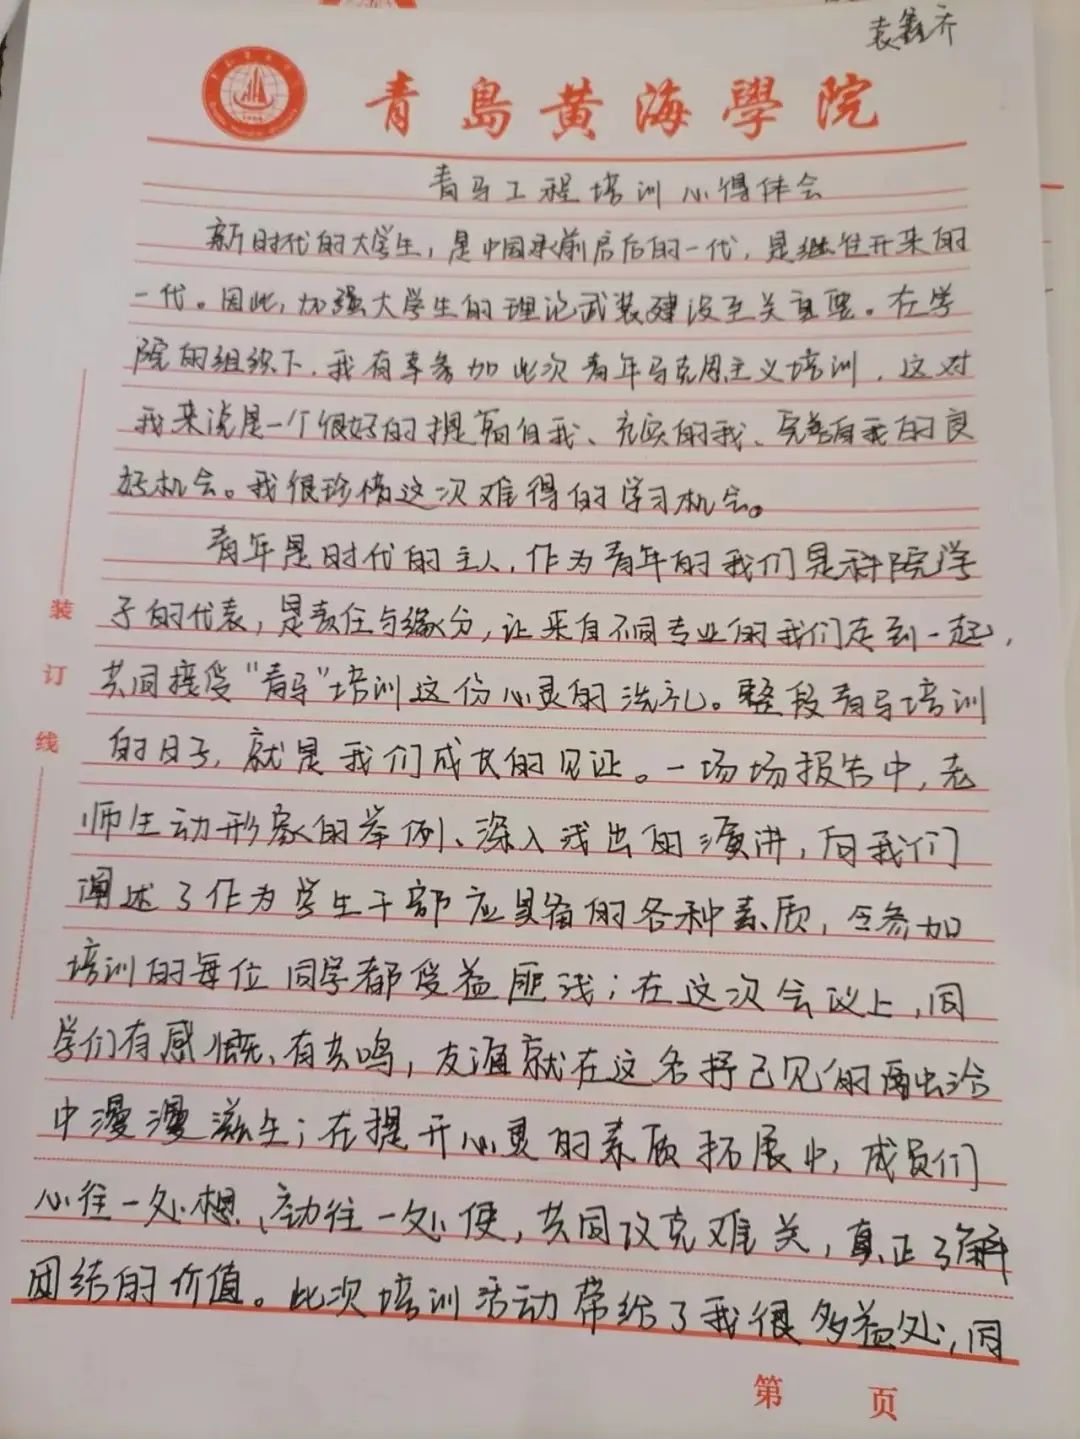 袁鑫乔
青島黄海學院
青马工程培训心得体会
新时代的大学生，是中国承前启后的一代，是继往开来的
一代。因此，加强大学生的理论武装建设至关重要。在学
院的组织下，我有幸参加此次青年马克思主义培训，这对
我来说是一个很好的提高自我、充实的我、完善自我的良
好机会。我很珍惜这次难得的学习机会。
青年是时代的主人，作为青年的我们是科院学
子的代表，是责任与缘分，让来自不同专业的我们走到一起，
共同接受“青马”培训这份心灵的洗礼。整段青马培训
的日子，就是我们成长的见证。一场场报告中，老
师生动形象的举例、深入浅出的演讲，向我们
阐述了作为学生干部应具备的各种素质，令参加
培训的每位同学都受益匪浅；在这次会议上，同
学们有感慨、有共鸣，友谊就在这各抒己见的
中漫漫滋生；在提升心灵的素质拓展中，成员们
心往一处想、动往一处使，共同议克难关，真正了解
团结的价值。此次培训活动带给了我很多益处，同
装
订
线
第 页